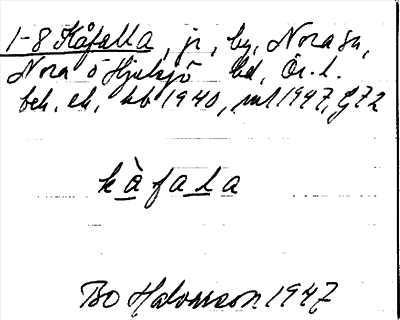 1-8 Kåfalla, jr, by, Nora sn,
Nora o Hjulsjö bd, Ör. l.
beb. ek, kb 1940, ml 1947, G72
kàfala
Bo Halvarson 1947